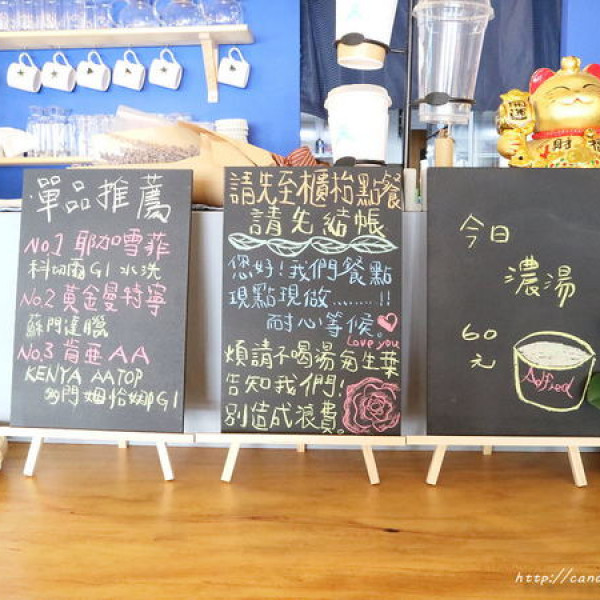 單品推薦
No.1 耶加雪菲
科切爾G1 水洗
No.2 黃金曼特寧
蘇門達臘
No.3 肯亞AA
KENYA AATOP
G1
請先至櫃枱點餐
請先結帳
您好!我們餐點
現點現做………!!
耐心等候。
Love you
煩請不喝湯 生菜
告知我們!
別造成浪費。
今日
濃湯
60
元
財
http://cand